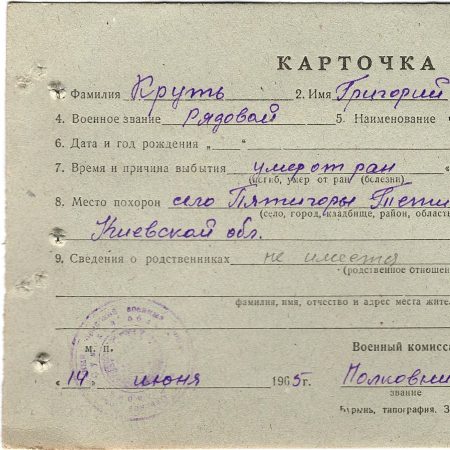 КАРТОЧКА
1. Фамилия Круть 2. Имя Григорий
4. Военное звание Рядовой 5. Наименование ч
6. Дата и год рождения „ “
7. Время и причина выбытия умер от ран „
(погиб, умер от ран (болезни)
8. Место похорон село Пятигоры Тети
(село, город, кладбище, район, област
Киевской обл.
9. Сведения о родственниках не имеется
(родственное отношен
фамилия, имя, отчество и адрес места жите
м. п. Военный комисса
„14“ июня 1965г. Полковни
звание
типография. З